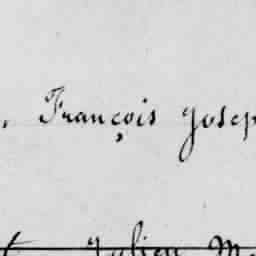 , François Josep
t Julien M.